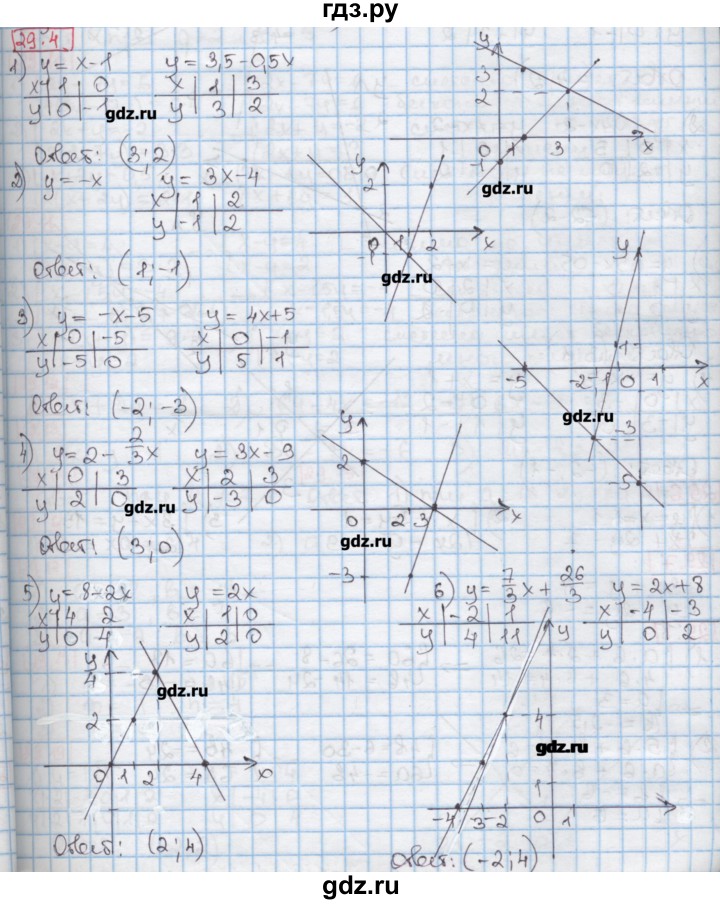 гдз.ру
29.4.
1) y = x-1 y = 3,5-0,5x
x | 1 | 0 x | 1 | 3
y | 0 | -1 y | 3 | 2
gdz.ru
Ответ: (3;2)
y 3 2 0 1 3 x -1
gdz.ru
2) y = -x y = 3x-4
x | 1 | 2
y | -1 | 2
Ответ: (1;-1)
y 2 0 1 2 x -1
gdz.ru
3) y = -x-5 y = 4x+5
x | 0 | -5 x | 0 | -1
y | -5 | 0 y | 5 | 1
Ответ: (-2;-3)
y 1 -5 -2 -1 0 1 x -3 -5
gdz.ru
4) y = 2 - 2/3x y = 3x-9
x | 0 | 3 x | 2 | 3
y | 2 | 0 y | -3 | 0
gdz.ru
Ответ: (3;0)
y 2 0 2 3 x -3
gdz.ru
5) y = 8-2x y = 2x
x | 4 | 2 x | 1 | 0
y | 0 | 4 y | 2 | 0
y 4 2 0 1 2 4 x
gdz.ru
Ответ: (2;4)
6) y = 7/3x + 26/3 y = 2x+8
x | -2 | 1 x | -4 | -3
y | 4 | 11 y | 0 | 2
y 4 1 -4 -3 -2 0 1
gdz.ru
Ответ: (-2;4)
gdz.ru